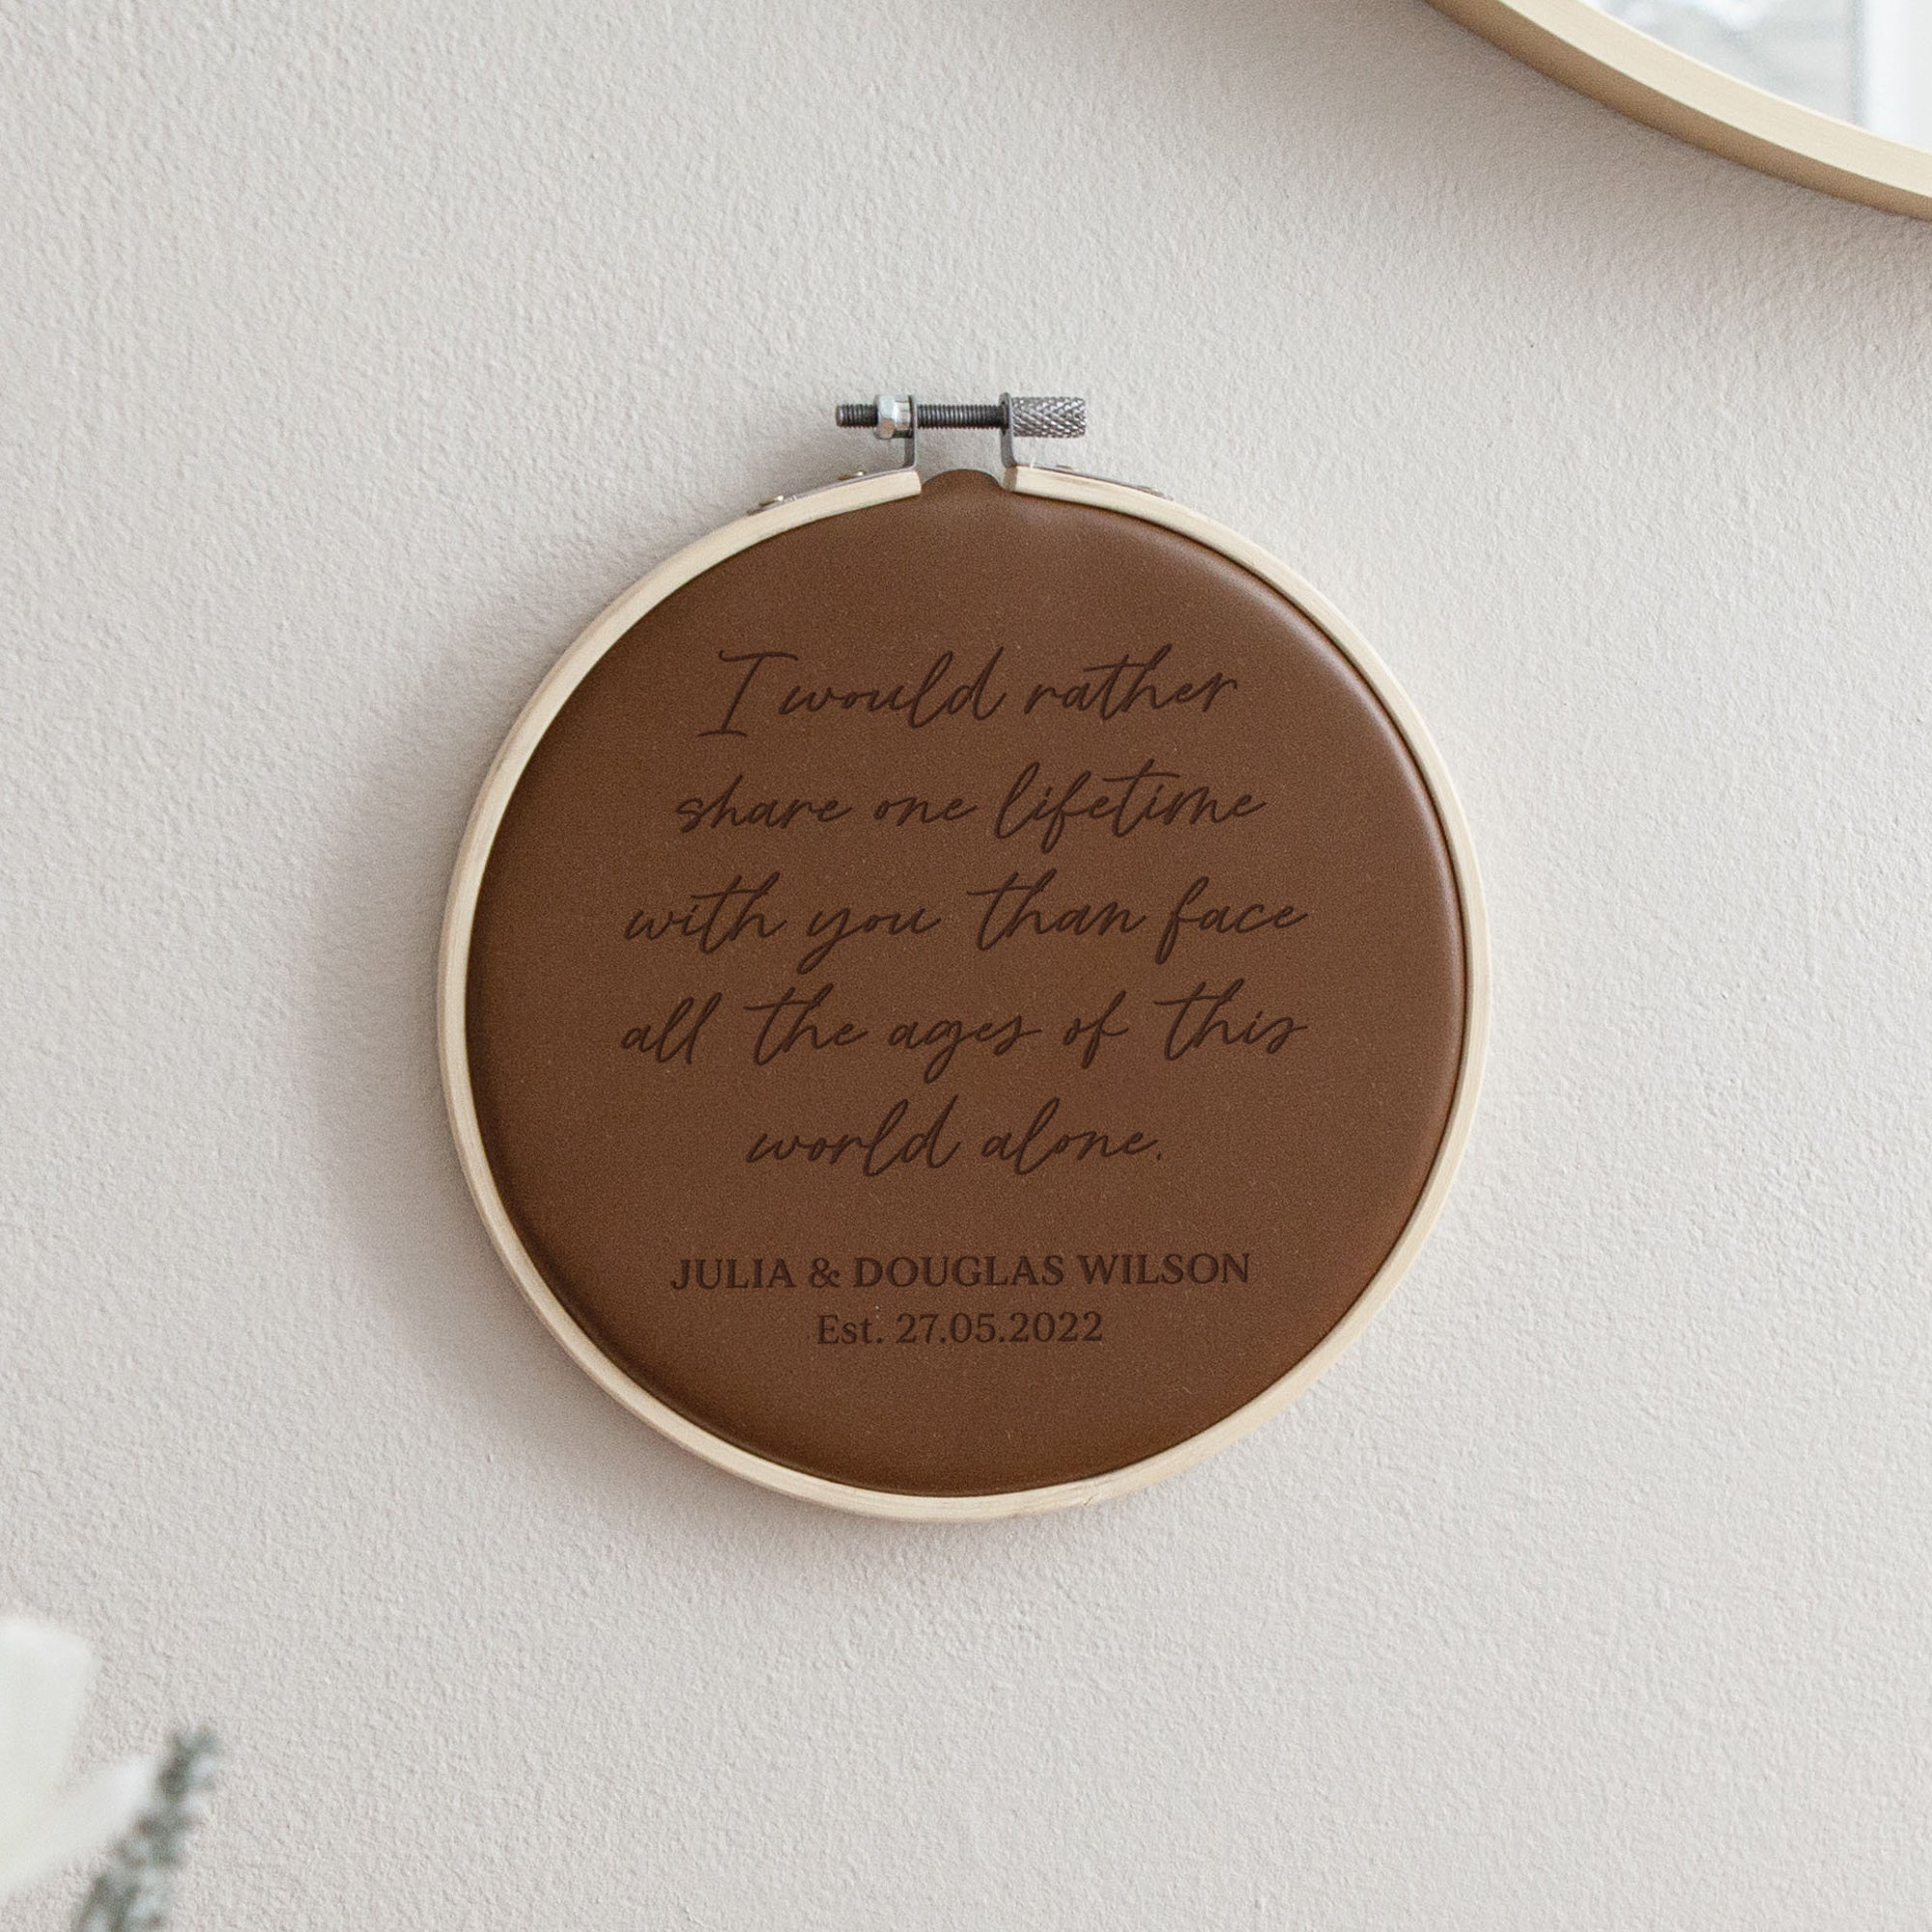 I would rather
share one lifetime
with you than face
all the ages of this
world alone.
JULIA & DOUGLAS WILSON
Est. 27.05.2022